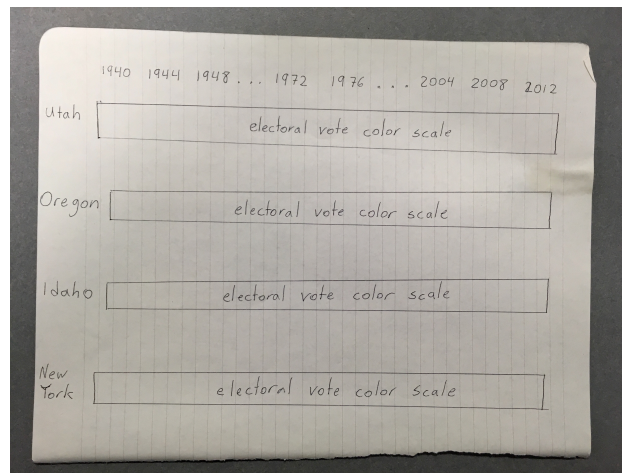 1940 1944 1948 ... 1972 1976 ... 2004 2008 2012
Utah electoral vote color scale
Oregon electoral vote color scale
Idaho electoral vote color scale
New
York electoral vote color scale